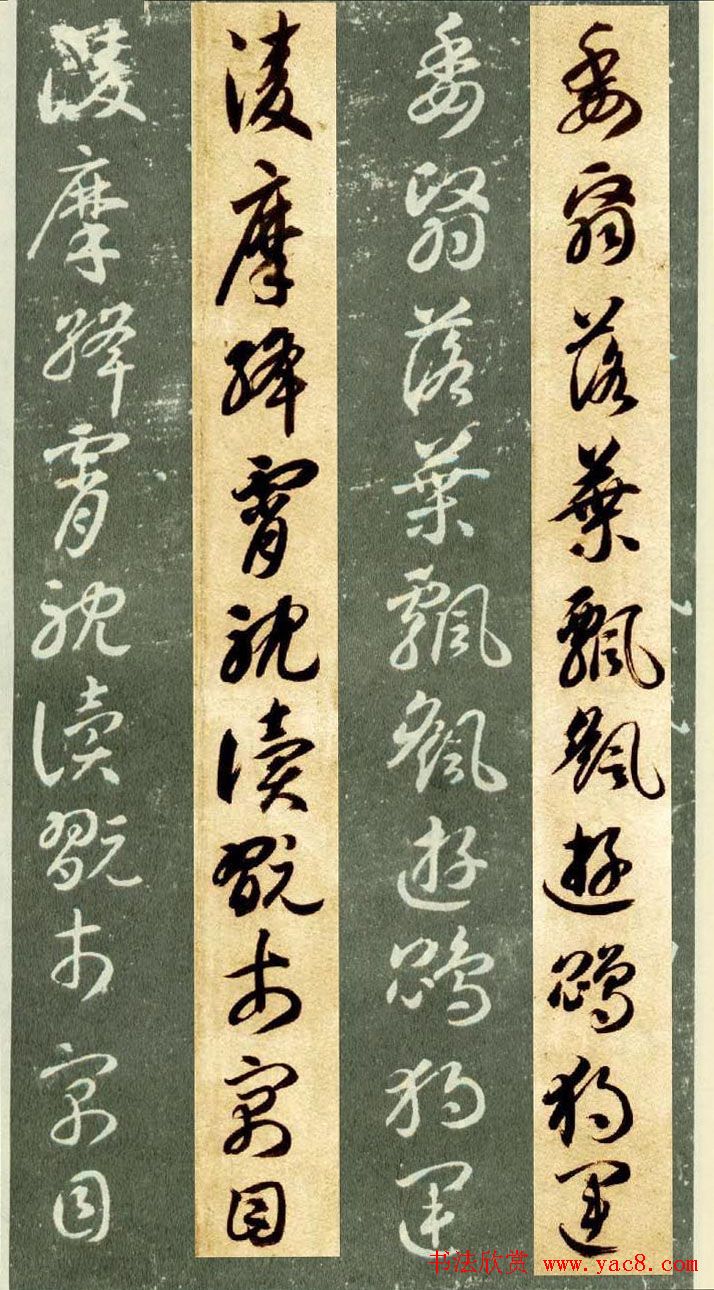 委翳落葉飄颻遊鵾獨運
委翳落葉飄颻遊鵾獨運
淩摩絳霄耽讀翫市寓目
淩摩絳霄耽讀翫市寓目
书法欣赏 www.yac8.com